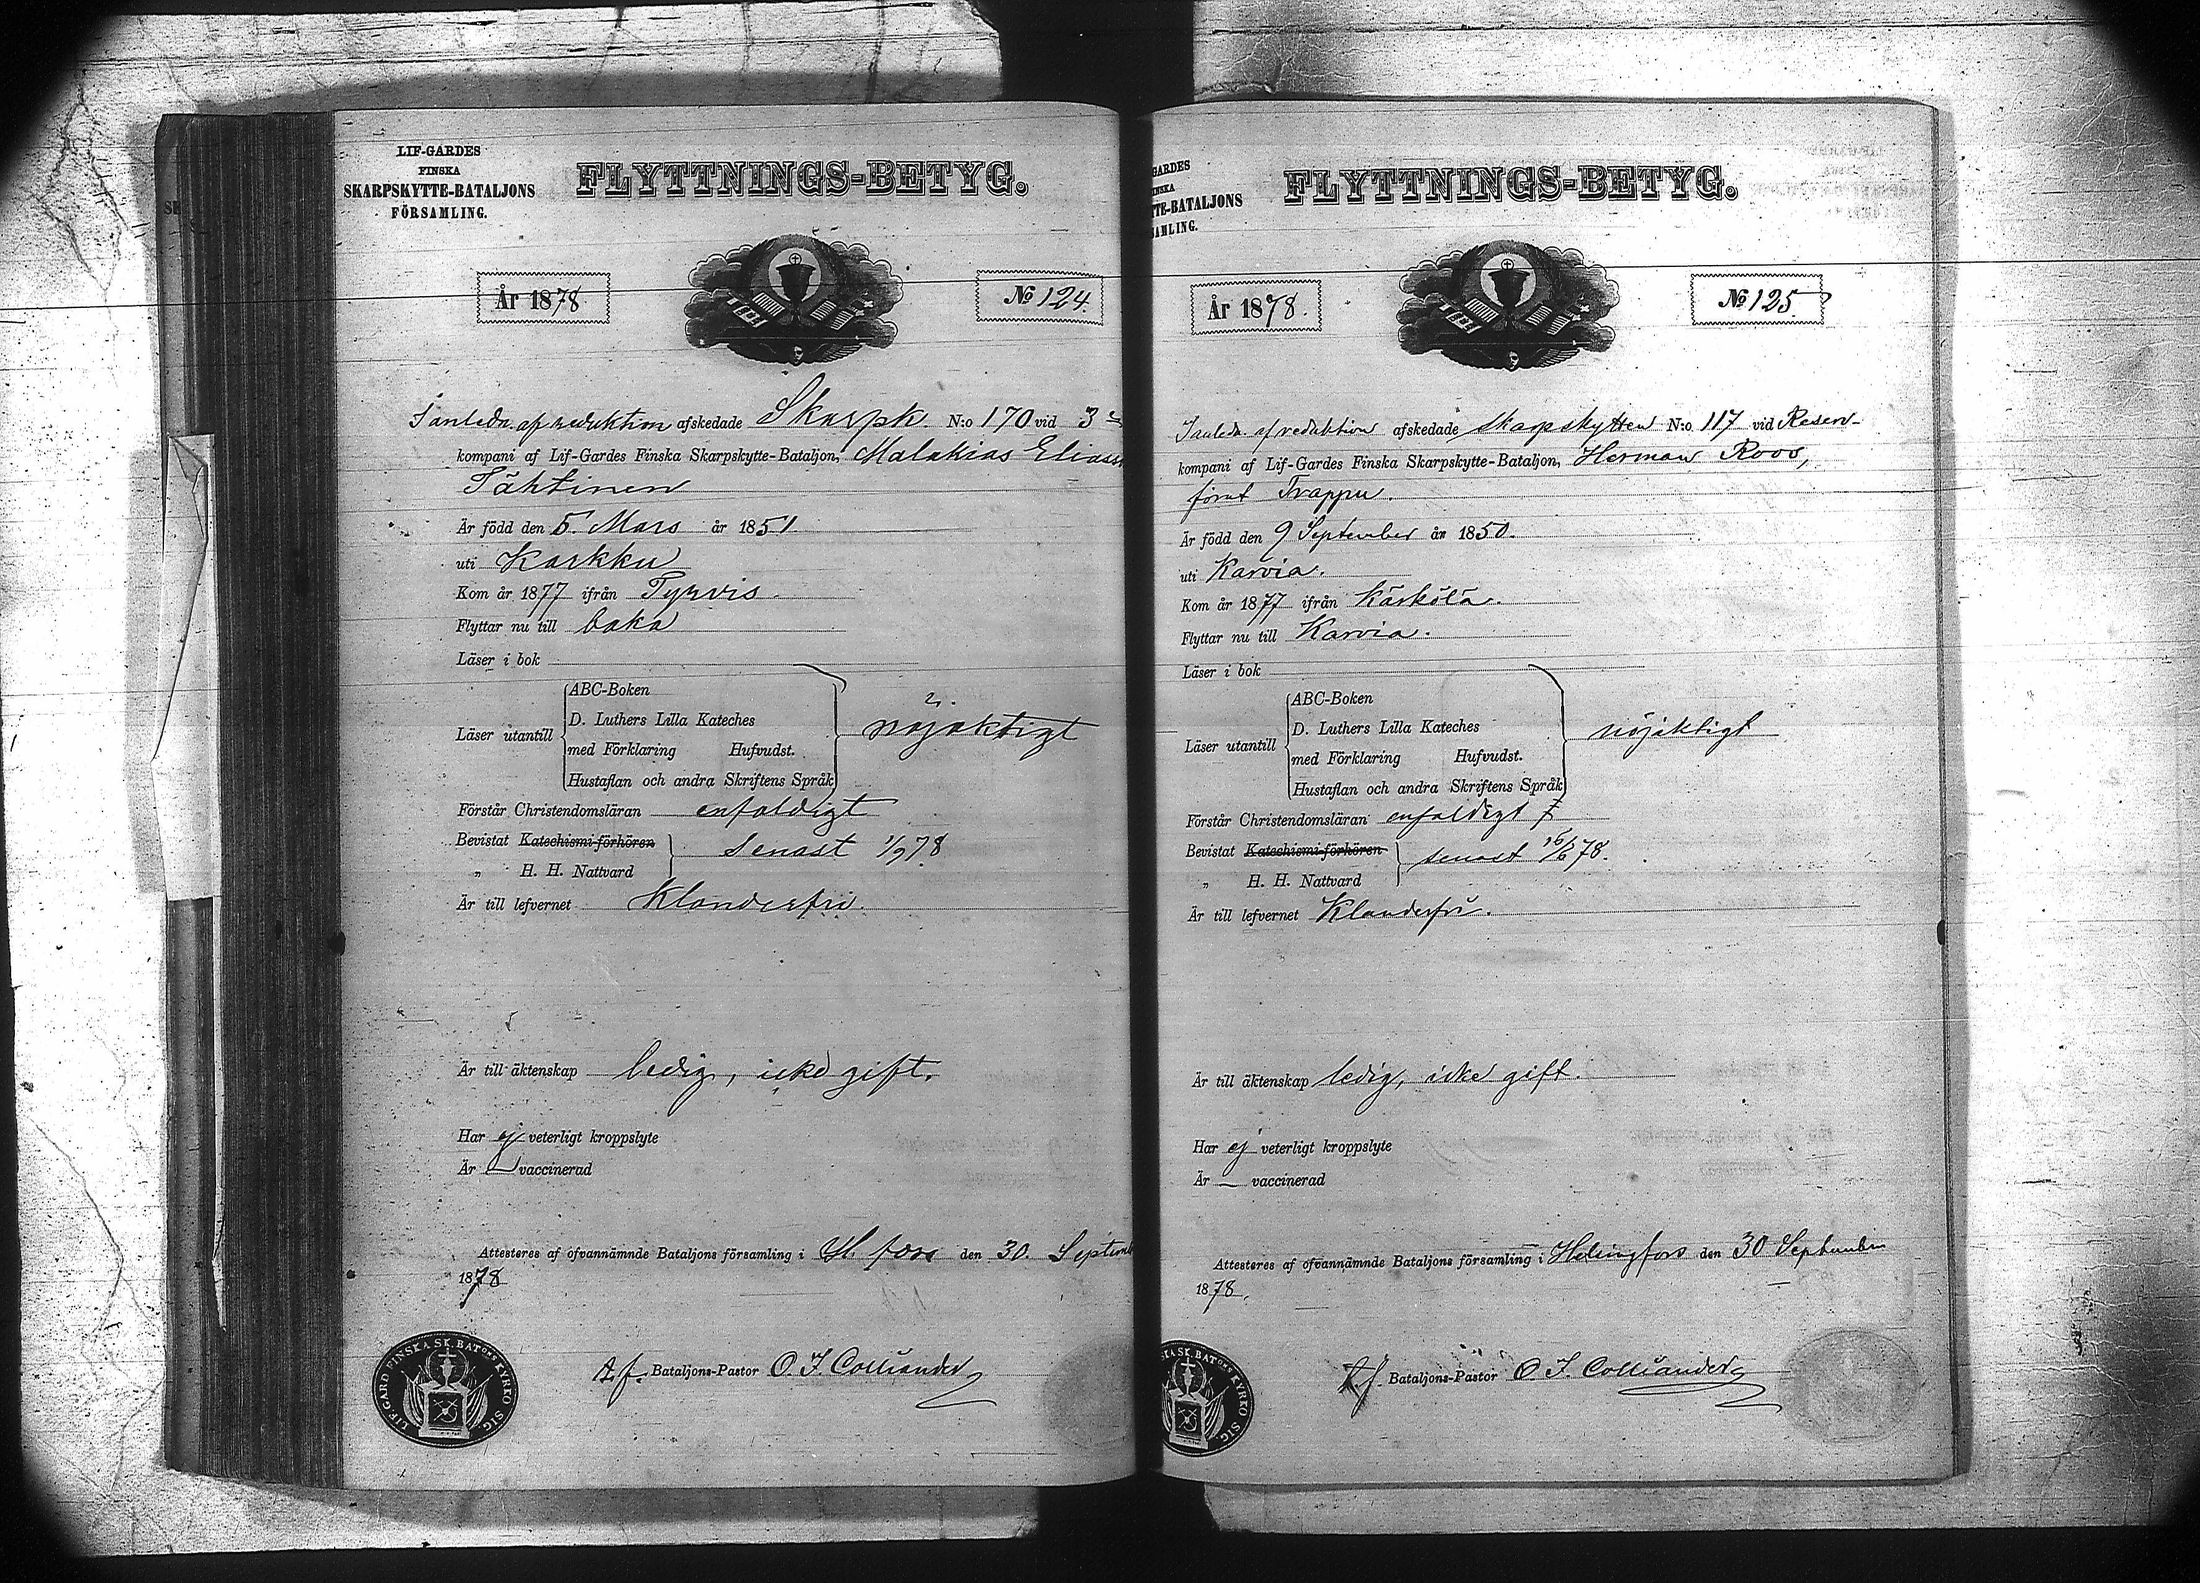 LIF-GARDES
FINSKA
SKARPSKYTTE-BATALJONS
FÖRSAMLING.
FLYTTNINGS-BETYG.
År 1878
№ 124.
I anledn. af reduktion afskedade Skarpk. N:o 170 vid 3
kompani af Lif-Gardes Finska Skarpskytte-Bataljon, Malakias Eliass
Tähtinen
Är född den 5. Mars år 1851
uti Karkku
Kom år 1877 ifrån Tyrvis
Flyttar nu till
Läser i bok
Läser utantill
ABC-Boken
D. Luthers Lilla Kateches
med Förklaring Hufvudst.
Hustaflan och andra Skriftens Språk
nöjaktigt
Förstår Christendomsläran enfaldigt
Bevistat Katechismi-förhören
„ H. H. Nattvard
Senast 1/9 78
Är till lefvernet Klanderfri.
Är till äktenskap ledig, icke gift.
Har ej veterligt kroppslyte
Är — vaccinerad
Attesteres af ofvannämnde Bataljons församling i H. fors den 30. Septemb
1878
LIF-GARD FINSKA SK. BATONS KYRKO SIG.
A.f. Bataljons-Pastor O. I. Colliander
GARDES
INSKA
TTE-BATALJONS
SAMLING.
FLYTTNINGS-BETYG.
År 1878.
№ 125.
I anledn. af reduktion afskedade Skarpskytten N:o 117 vid Reserv-
kompani af Lif-Gardes Finska Skarpskytte-Bataljon, Herman Roos,
förut Trappu.
Är född den 9 September år 1850.
uti Karvia.
Kom år 1877 ifrån Kärkölä.
Flyttar nu till Karvia.
Läser i bok
Läser utantill
ABC-Boken
D. Luthers Lilla Kateches
med Förklaring Hufvudst.
Hustaflan och andra Skriftens Språk
nöjaktigt
Förstår Christendomsläran enfaldigt
Bevistat Katechismi-förhören
„ H. H. Nattvard
senast 16/6 78.
Är till lefvernet Klanderfri.
Är till äktenskap ledig, icke gift.
Har ej veterligt kroppslyte
Är — vaccinerad
Attesteres af ofvannämnde Bataljons församling i Helsingfors den 30 September
1878.
SKA SK. BATONS KYRKO SIG.
A.f. Bataljons-Pastor O. I. Colliander